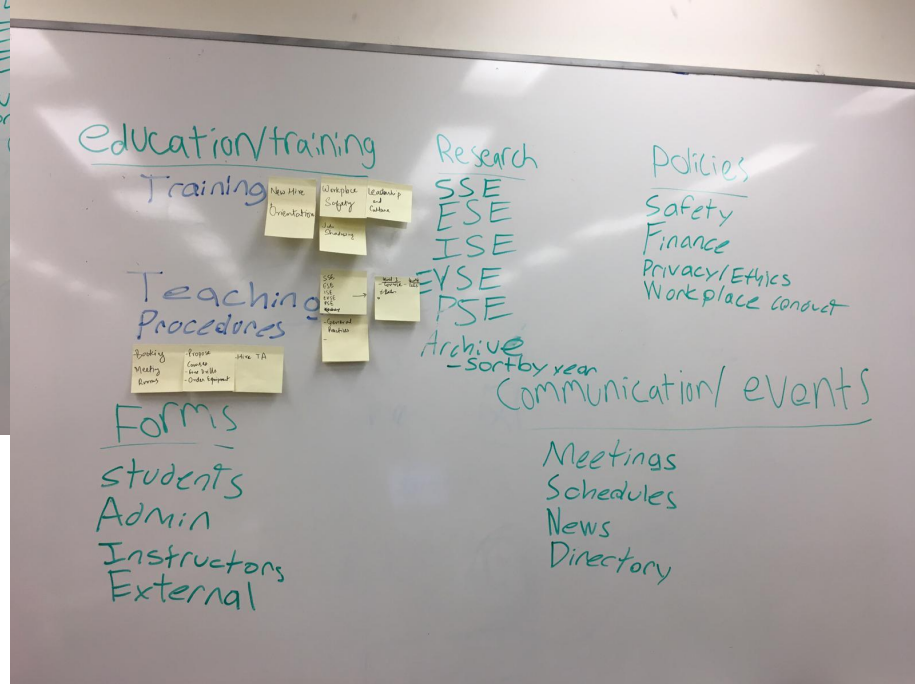 education/training
Training
New Hire
Orientation
Workplace
Safety
Leadership
and
Culture
Job
Shadowing
Teaching
SSE
ESE
ISE
EVSE
PSE
Procedures
Booking
Meeting
Rooms
-Propose
Courses
-Order Equipment
Hire TA
Forms
students
Admin
Instructors
External
Research
SSE
ESE
ISE
EVSE
PSE
Archive
-Sort by year
Policies
Safety
Finance
Privacy/Ethics
Workplace conduct
Communication/events
Meetings
Schedules
News
Directory